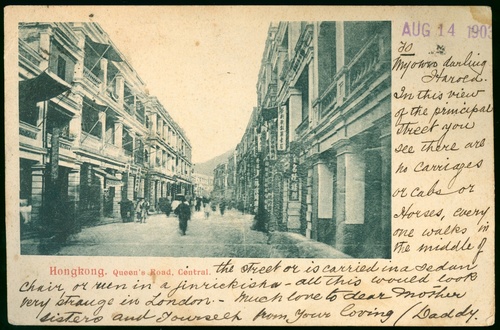 AUG 14 190
To
My own darling
Harold.
In this view
of the principal
street you
see there are
no carriages
or cabs or
Horses, every
one walks in
the middle of
Hongkong. Queen's Road, Central.
the street or is carried in a Sedan
chair, or run in a jinrickisha - all this would look
very strange in London - Much love to dear Mother
sisters and yourself from Your loving / Daddy.